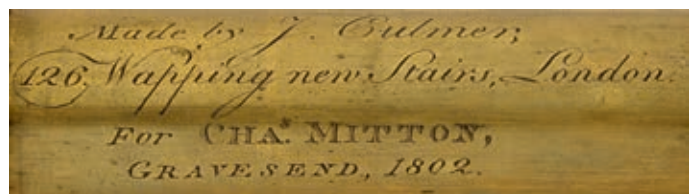 Made by J. Culmer;
126. Wapping new Stairs, London.
For CHAS. MITTON,
GRAVESEND, 1802.